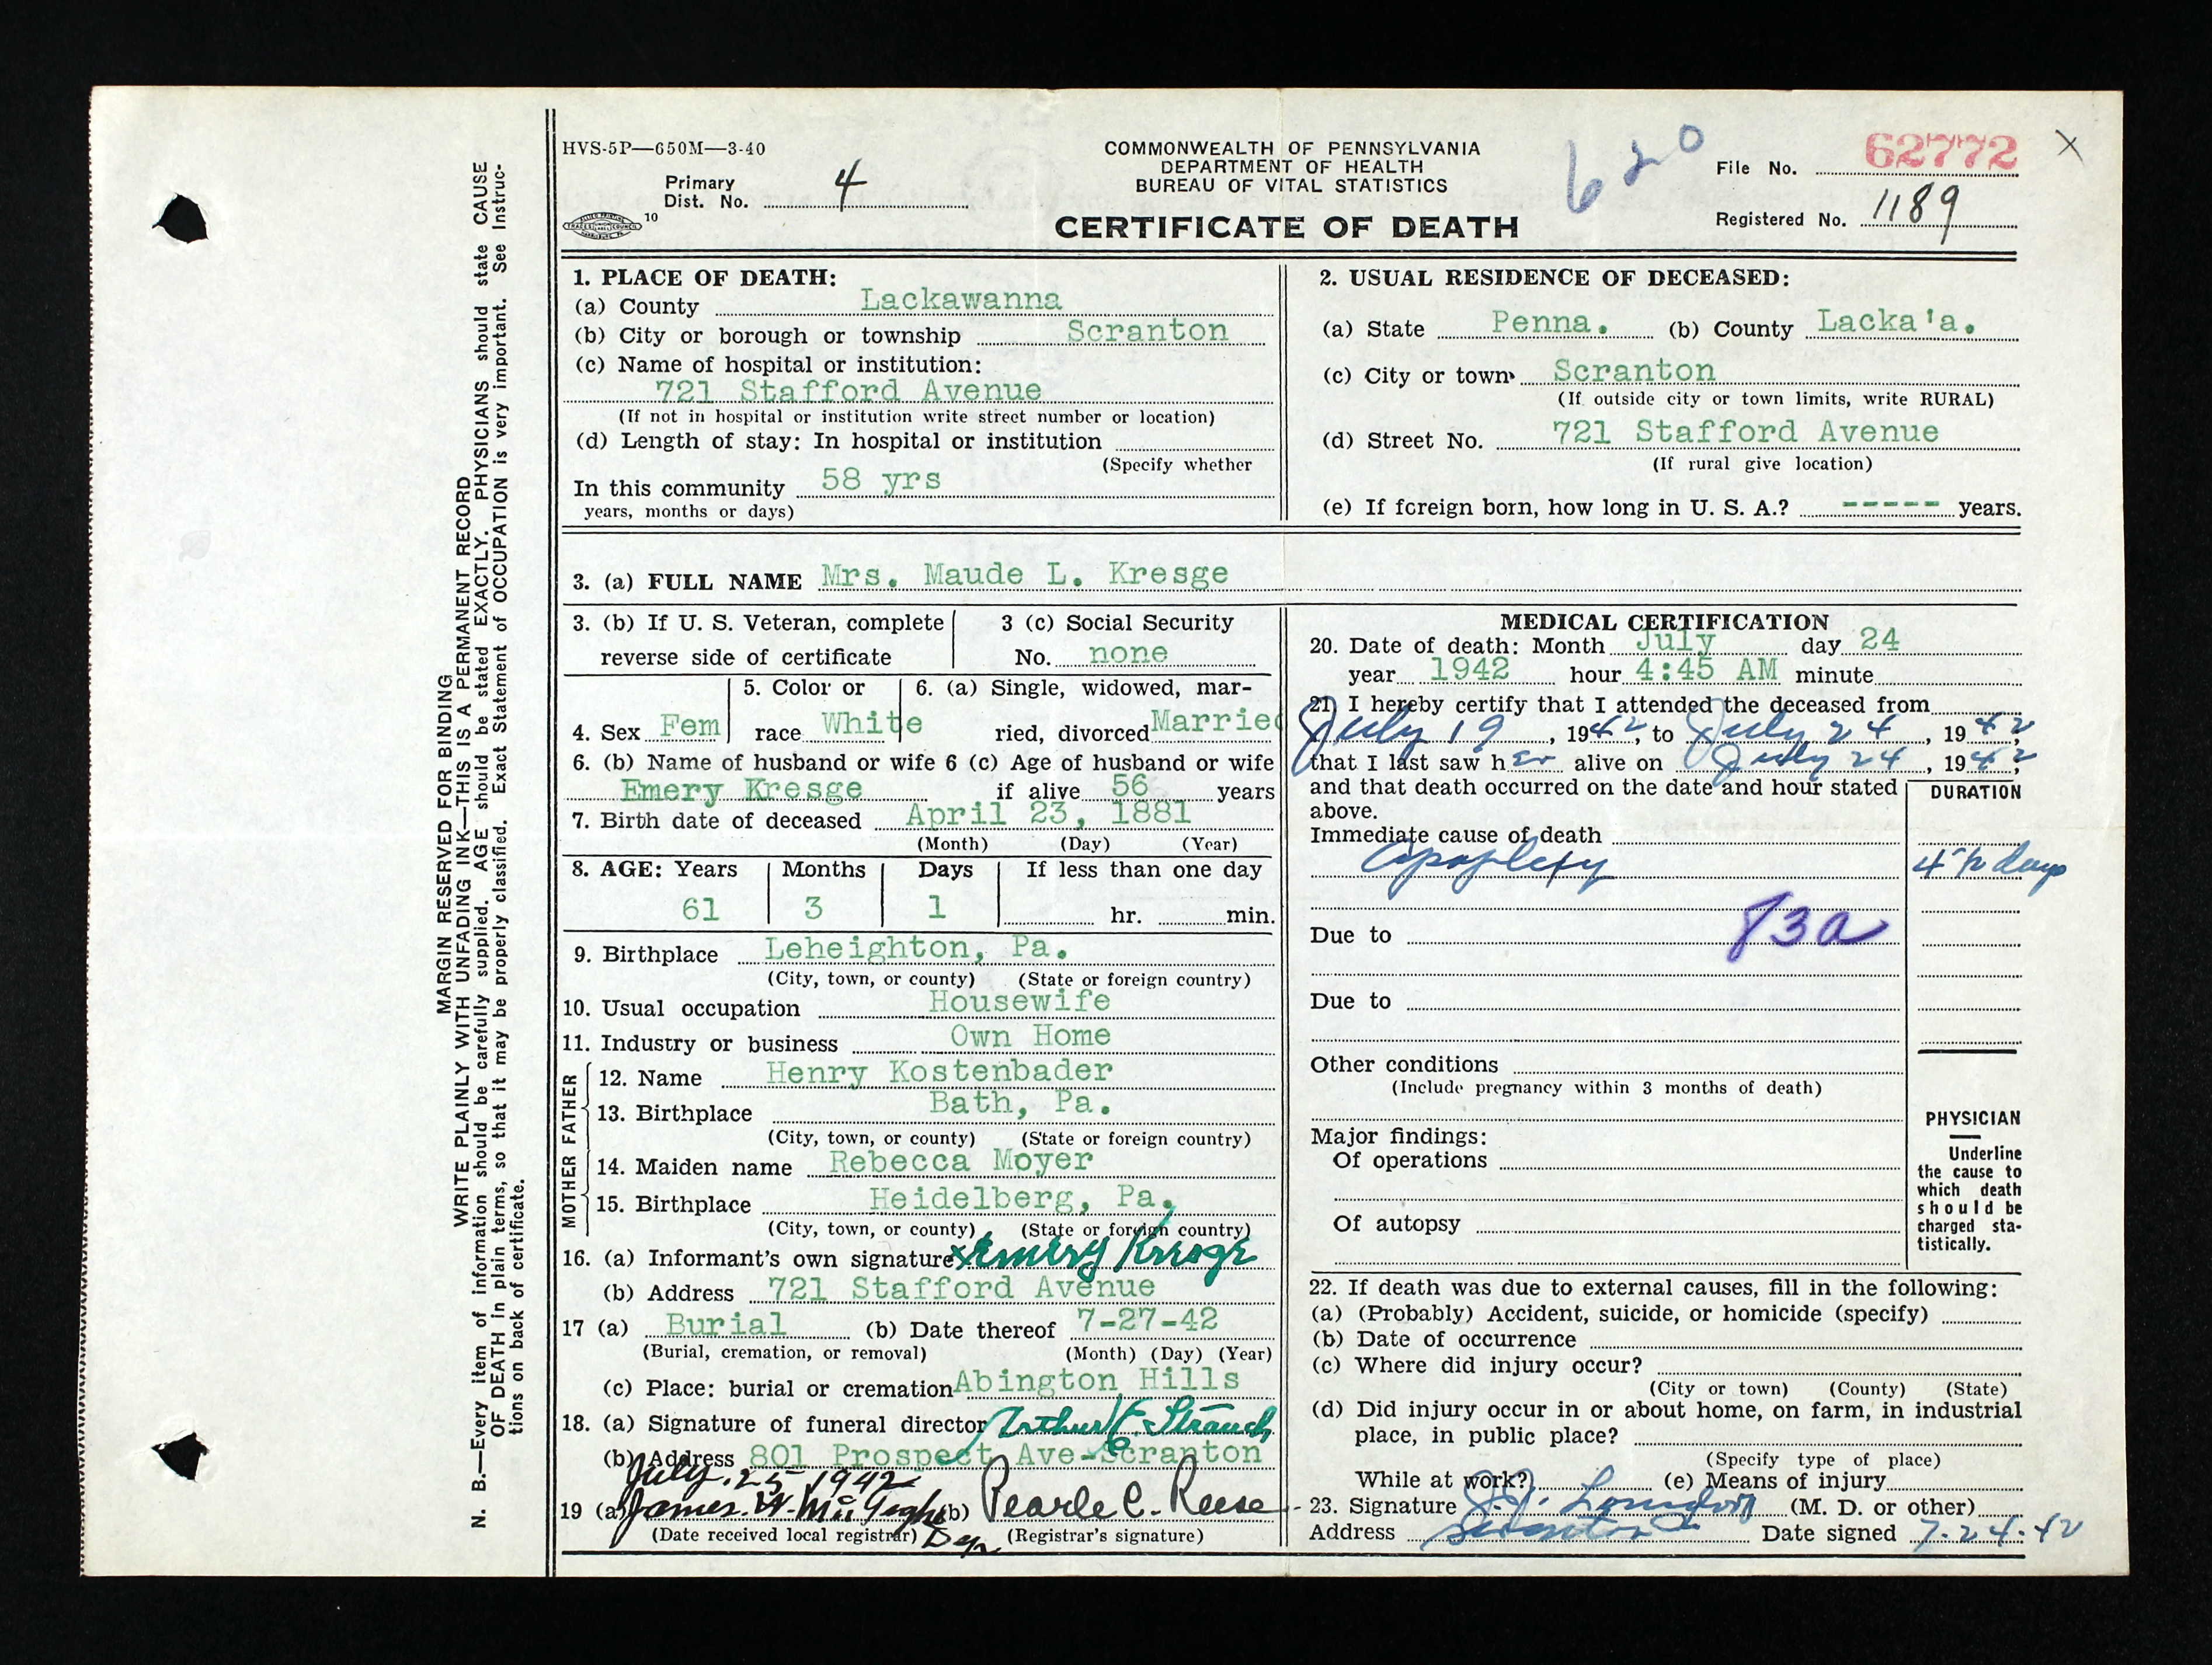 HVS-5P—650M—3-40
Primary
Dist. No. 4
10
COMMONWEALTH OF PENNSYLVANIA
DEPARTMENT OF HEALTH
BUREAU OF VITAL STATISTICS
CERTIFICATE OF DEATH
620
File No. 62772 X
Registered No. 1189
1. PLACE OF DEATH:
(a) County Lackawanna
(b) City or borough or township Scranton
(c) Name of hospital or institution:
721 Stafford Avenue
(If not in hospital or institution write street number or location)
(d) Length of stay: In hospital or institution
(Specify whether
In this community 58 yrs
years, months or days)
2. USUAL RESIDENCE OF DECEASED:
(a) State Penna. (b) County Lacka'a.
(c) City or town Scranton
(If outside city or town limits, write RURAL)
(d) Street No. 721 Stafford Avenue
(If rural give location)
(e) If foreign born, how long in U. S. A.? ----- years.
3. (a) FULL NAME Mrs. Maude L. Kresge
3. (b) If U. S. Veteran, complete
reverse side of certificate
3 (c) Social Security
No. none
4. Sex Fem
5. Color or
race White
6. (a) Single, widowed, mar-
ried, divorced Married
6. (b) Name of husband or wife
Emery Kresge
6 (c) Age of husband or wife
if alive 56 years
7. Birth date of deceased April 23, 1881
(Month) (Day) (Year)
8. AGE: Years Months Days If less than one day
61 3 1 hr. min.
9. Birthplace Leheighton, Pa.
(City, town, or county) (State or foreign country)
10. Usual occupation Housewife
11. Industry or business Own Home
FATHER
12. Name Henry Kostenbader
13. Birthplace Bath, Pa.
(City, town, or county) (State or foreign country)
MOTHER
14. Maiden name Rebecca Moyer
15. Birthplace Heidelberg, Pa.
(City, town, or county) (State or foreign country)
16. (a) Informant's own signature x Emery Kresge
(b) Address 721 Stafford Avenue
17 (a) Burial (b) Date thereof 7-27-42
(Burial, cremation, or removal) (Month) (Day) (Year)
(c) Place: burial or cremation Abington Hills
18. (a) Signature of funeral director Arthur E. Strauch
(b) Address 801 Prospect Ave-Scranton
July. 25 1942
19 (a) James. W. (b) Pearle C. Reese
(Date received local registrar) Dep (Registrar's signature)
MEDICAL CERTIFICATION
20. Date of death: Month July day 24
year 1942 hour 4:45 AM minute
21. I hereby certify that I attended the deceased from
July 19, 1942, to July 24, 1942,
that I last saw her alive on July 24, 1942,
and that death occurred on the date and hour stated
above.
DURATION
Immediate cause of death
Apoplexy 4 1/2 days
83a
Due to
Due to
Other conditions
(Include pregnancy within 3 months of death)
Major findings:
Of operations
Of autopsy
PHYSICIAN
Underline
the cause to
which death
should be
charged sta-
tistically.
22. If death was due to external causes, fill in the following:
(a) (Probably) Accident, suicide, or homicide (specify)
(b) Date of occurrence
(c) Where did injury occur?
(City or town) (County) (State)
(d) Did injury occur in or about home, on farm, in industrial
place, in public place?
(Specify type of place)
While at work? (e) Means of injury
23. Signature (M. D. or other)
Address Scranton Date signed 7-24-42
MARGIN RESERVED FOR BINDING
WRITE PLAINLY WITH UNFADING INK—THIS IS A PERMANENT RECORD
N. B.—Every item of information should be carefully supplied. AGE should be stated EXACTLY. PHYSICIANS should state CAUSE
OF DEATH in plain terms, so that it may be properly classified. Exact Statement of OCCUPATION is very important. See Instruc-
tions on back of certificate.